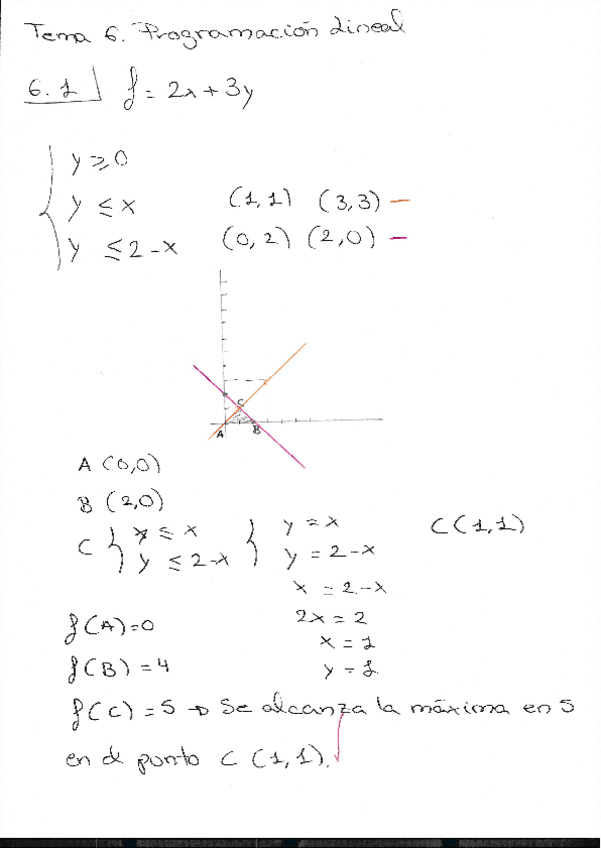 Tema 6. Programación Lineal
6.1 f = 2x + 3y
y ≥ 0
y ≤ x (1,1) (3,3) —
y ≤ 2-x (0,2) (2,0) —
C
A B
A (0,0)
B (2,0)
C { y ≤ x } y = x C (1,1)
y ≤ 2-x y = 2-x
x = 2-x
2x = 2
f(A)=0 x = 1
f(B) = 4 y = 1
f(C) = 5 → Se alcanza la máxima en 5
en el punto C (1,1).